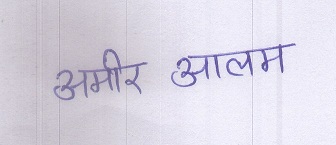 अमीर आलम